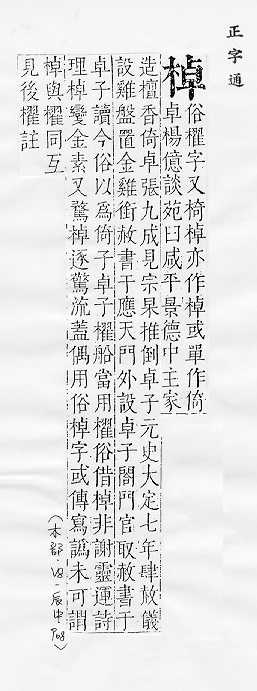 正字通
棹
俗櫂字又椅棹亦作棹或單作倚
卓楊億談苑曰咸平景德中主家
造檀香倚卓張九成見宗杲推倒卓子元史大定七年肆放儀
設雞盤置金雞銜赦書于應天門外設卓子閤門官取赦書于
卓子讀今俗以爲倚子卓子櫂船當用櫂俗借棹非謝靈運詩
理棹變金素又鶩棹逐驚流蓋偶用俗棹字或傳寫譌未可謂
棹與櫂同互
見後櫂註